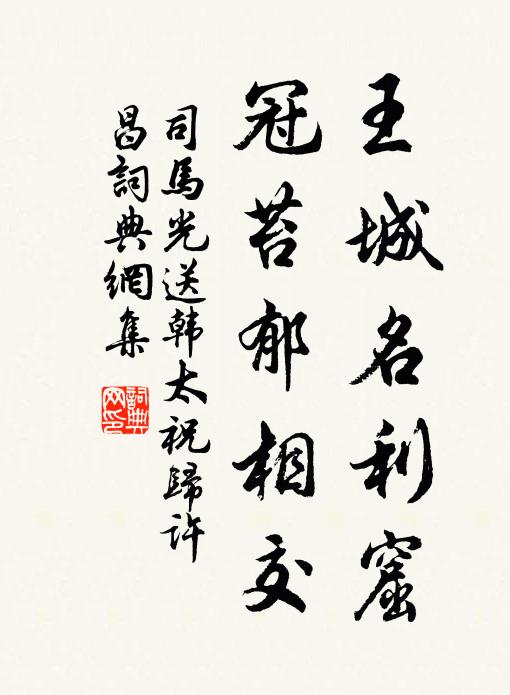 王城名利窟
冠苔郁相交
司馬光送韩太祝歸许
昌詞典網集
詞典网印